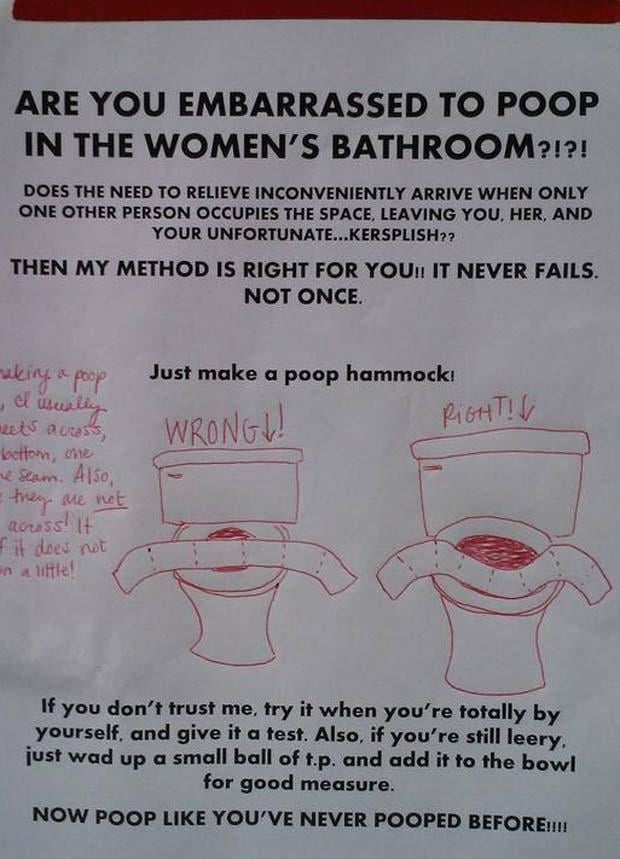 ARE YOU EMBARRASSED TO POOP
IN THE WOMEN'S BATHROOM?!?!
DOES THE NEED TO RELIEVE INCONVENIENTLY ARRIVE WHEN ONLY
ONE OTHER PERSON OCCUPIES THE SPACE, LEAVING YOU, HER, AND
YOUR UNFORTUNATE...KERSPLISH??
THEN MY METHOD IS RIGHT FOR YOU!! IT NEVER FAILS.
NOT ONCE.
Just make a poop hammock!
a poop
I usually
across,
bottom, one
seam. Also,
they are not
across! It
it does not
a little!
WRONG↓!
RiGHT!↓
If you don't trust me, try it when you're totally by
yourself, and give it a test. Also, if you're still leery,
just wad up a small ball of t.p. and add it to the bowl
for good measure.
NOW POOP LIKE YOU'VE NEVER POOPED BEFORE!!!!